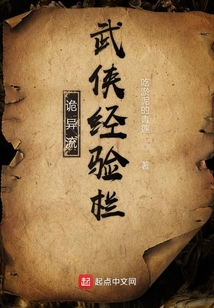 武侠经验栏
诡异流
吃淤泥的青莲 著
起点中文网